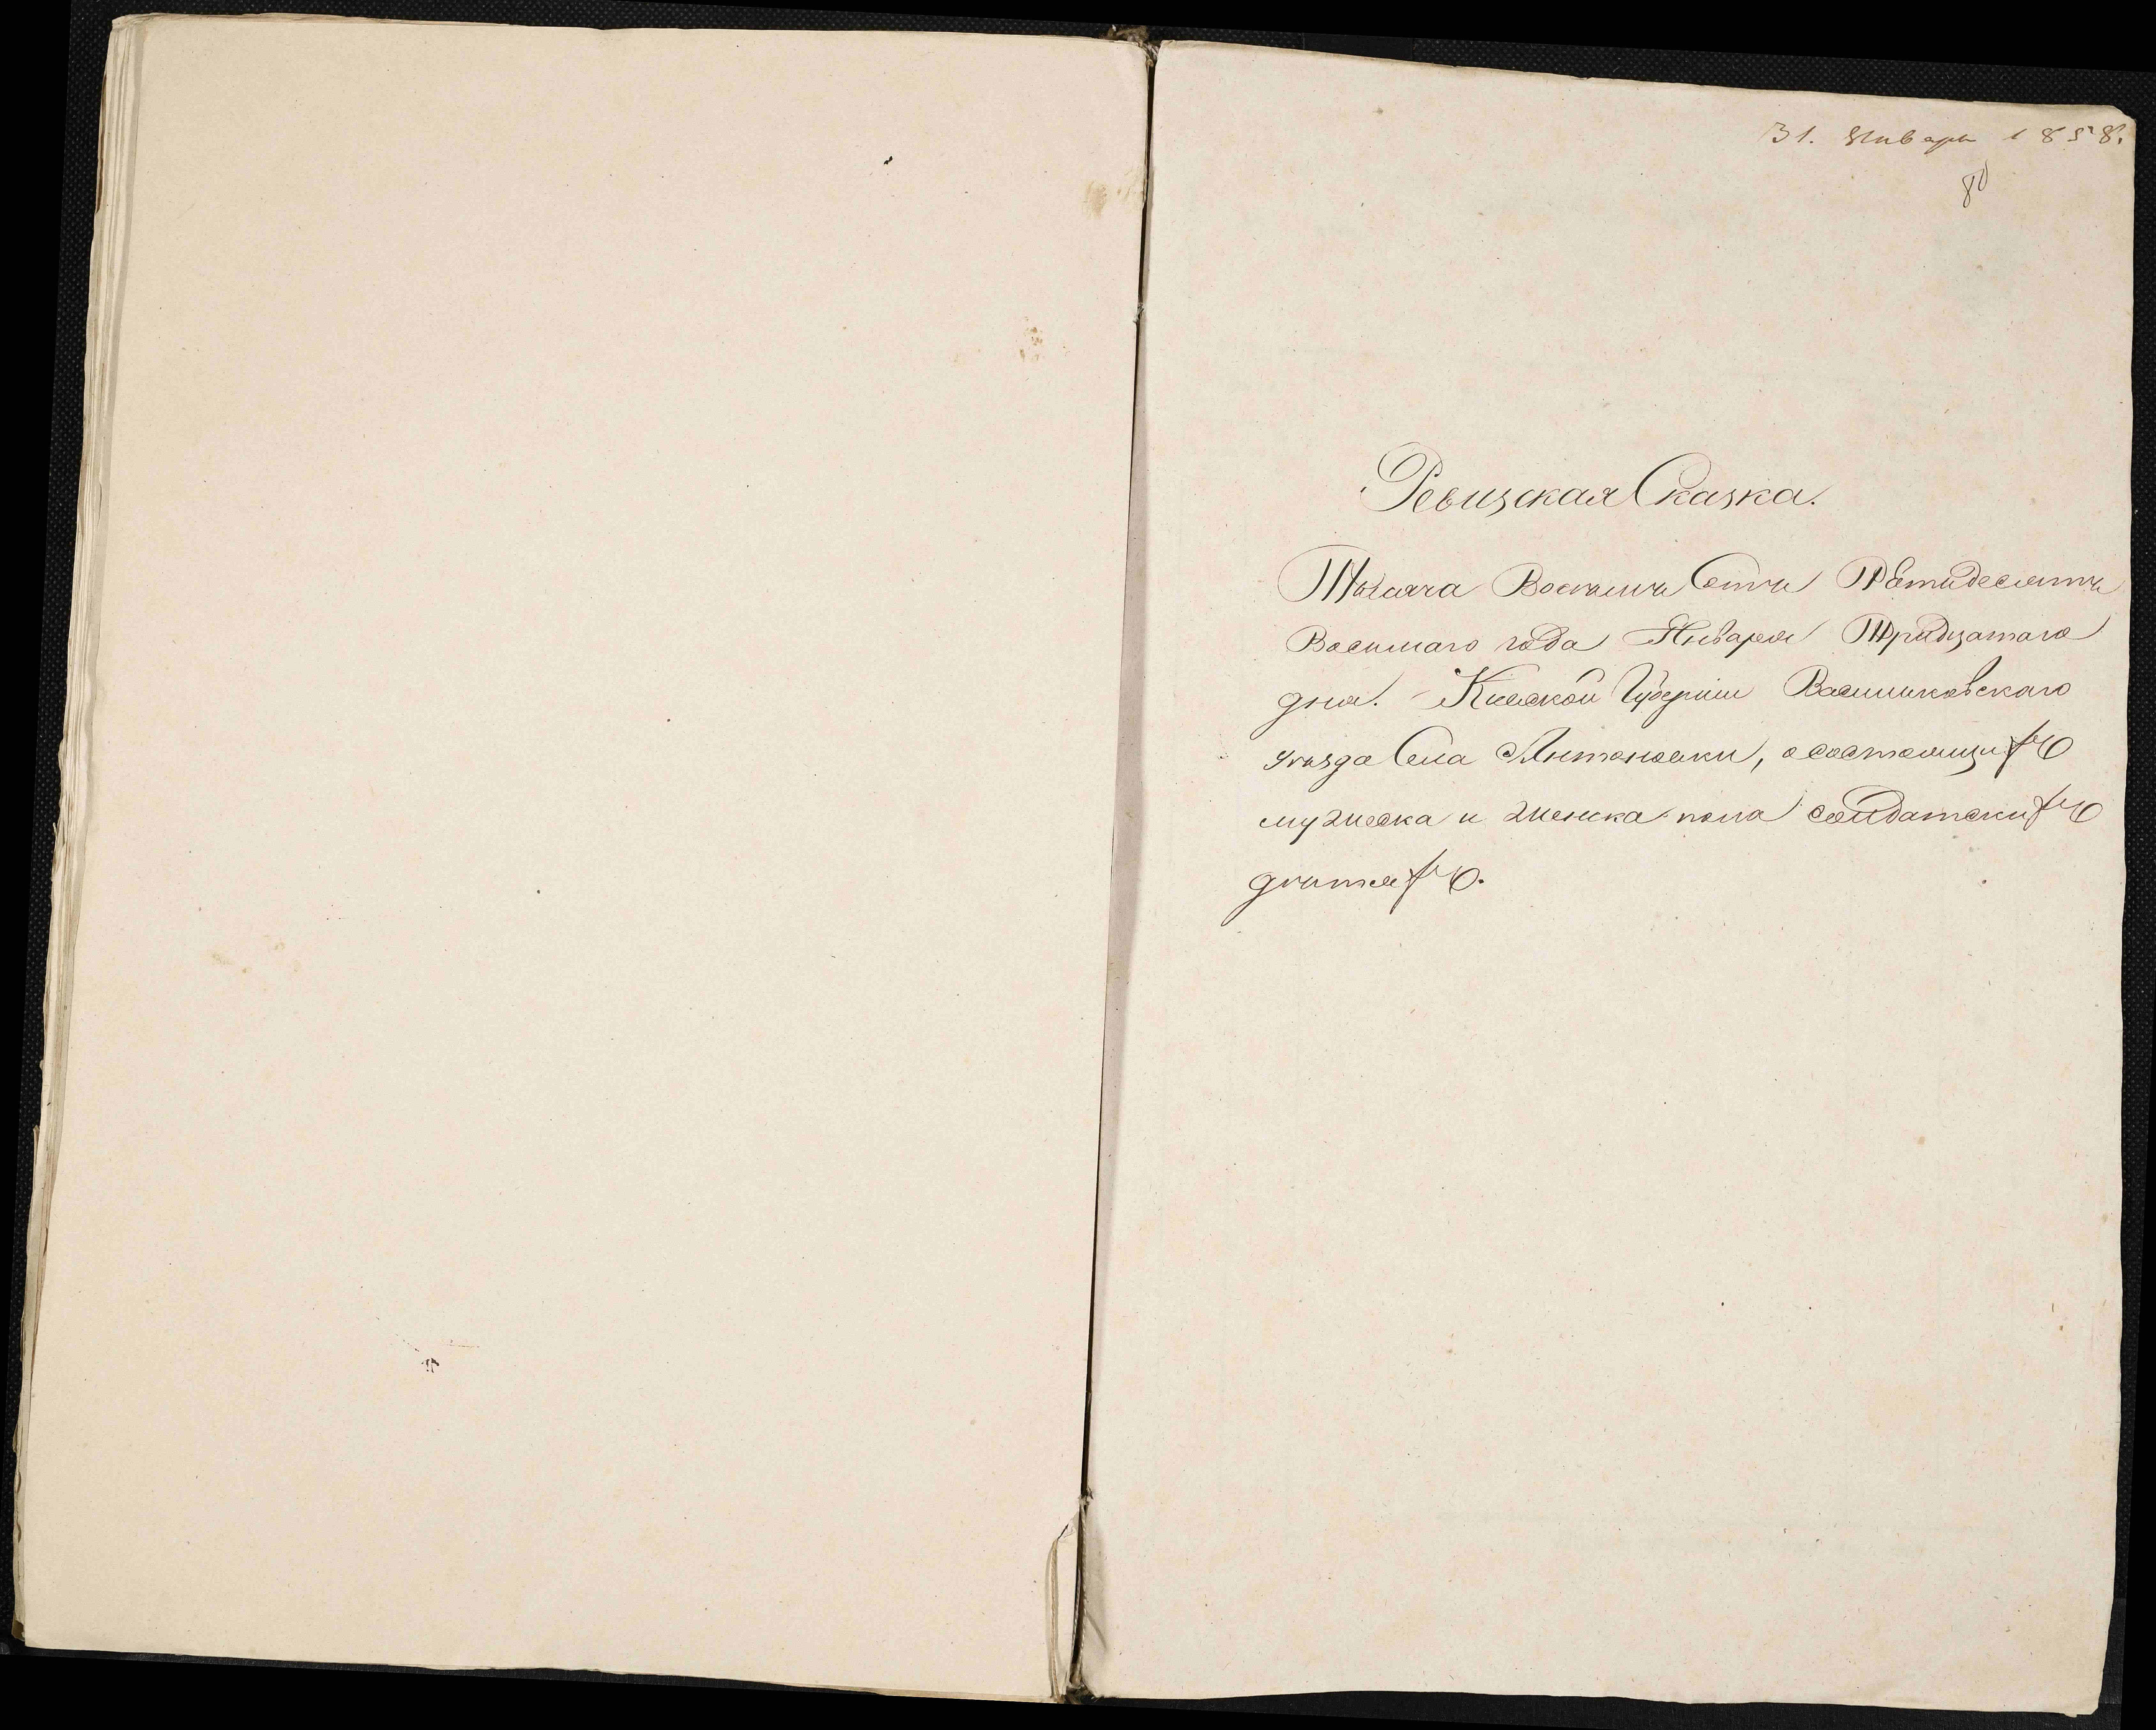 31. Января 1858.
80
Ревизская Сказка.
Тысяча Восемь Сотъ Пятидесятъ
Восьмаго года Января Тридцатаго
дня. Кіевской Губерніи Васильковскаго
уѣзда Села Антоновки, о состоящихъ
мужеска и женска пола солдатскихъ
дѣтяхъ.